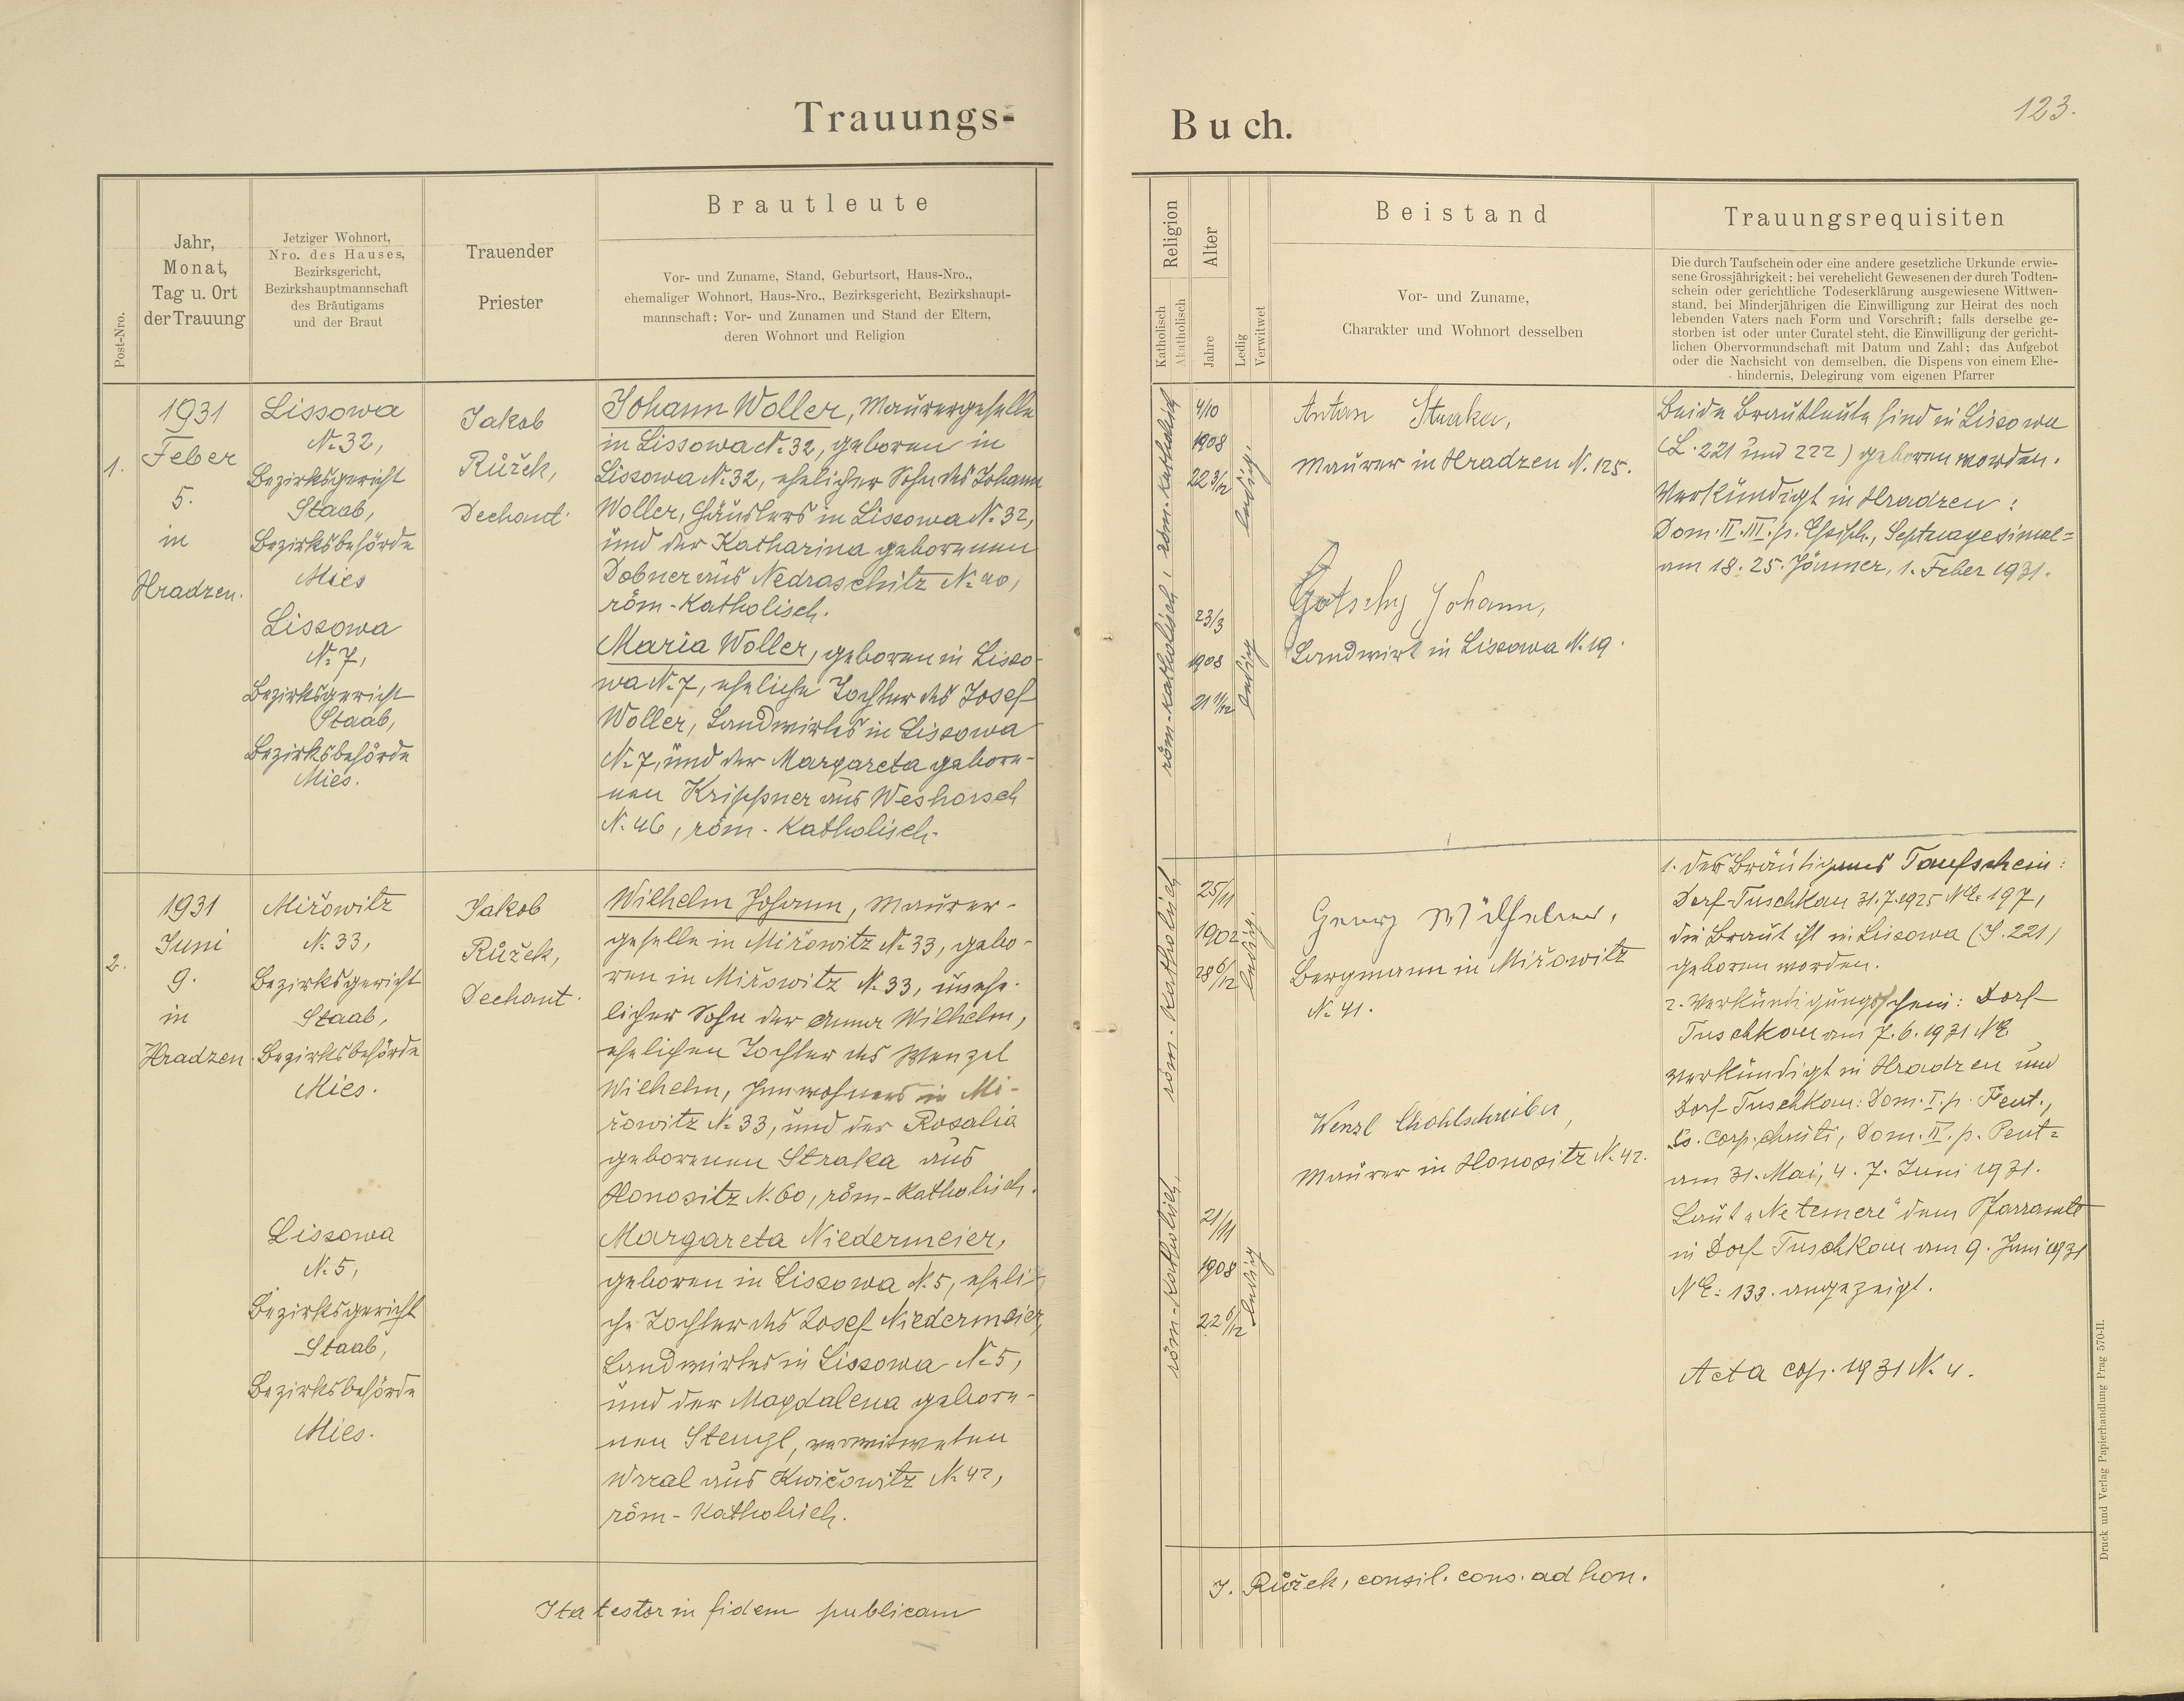 Trauungs-
Buch.
123.
Post-Nro.
Jahr,
Monat,
Tag u. Ort
der Trauung
Jetziger Wohnort,
Nro. des Hauses,
Bezirksgericht,
Bezirkshauptmannschaft
des Bräutigams
und der Braut
Trauender
Priester
Brautleute
Vor- und Zuname, Stand, Geburtsort, Haus-Nro.,
ehemaliger Wohnort, Haus-Nro., Bezirksgericht, Bezirkshaupt-
mannschaft; Vor- und Zunamen und Stand der Eltern,
deren Wohnort und Religion
Religion
Katholisch
Akatholisch
Alter
Jahre
Ledig
Verwitwet
Beistand
Vor- und Zuname,
Charakter und Wohnort desselben
Trauungsrequisiten
Die durch Taufschein oder eine andere gesetzliche Urkunde erwie-
sene Grossjährigkeit; bei verehelicht Gewesenen der durch Todten-
schein oder gerichtliche Todeserklärung ausgewiesene Wittwen-
stand, bei Minderjährigen die Einwilligung zur Heirat des noch
lebenden Vaters nach Form und Vorschrift; falls derselbe ge-
storben ist oder unter Curatel steht, die Einwilligung der gericht-
lichen Obervormundschaft mit Datum und Zahl; das Aufgebot
oder die Nachsicht von demselben, die Dispens von einem Ehe-
hindernis, Delegirung vom eigenen Pfarrer
1.
1931
Feber
5.
in
Hradzen.
Lissowa
N. 32,
Bezirksgericht
Staab,
Bezirksbehörde
Mies
Lissowa
N. 7,
Bezirksgericht
Staab,
Bezirksbehörde
Mies.
Jakob
Růžek,
Dechant.
Johann Woller, Maurergeselle
in Lissowa N. 32, geboren in
Lissowa N. 32, ehelicher Sohn des Johann
Woller, Häuslers in Lissowa N. 32,
und der Katharina geborenen
Dobner aus Nedraschitz N. 40,
röm-katholisch.
Maria Woller, geboren in Lisso-
wa N. 7, eheliche Tochter des Josef
Woller, Landwirtes in Lissowa
N. 7, und der Margareta gebore-
nen Krippner aus Weshorsch
N. 46, röm-katholisch.
röm-katholisch, röm-katholisch
4/10
1908
22 3/12
ledig.
23/3
1908
21 11/12
ledig
Anton Straka,
Maurer in Hradzen N. 125.
Johann,
Landwirt in Lissowa N. 19.
Beide Brautleute sind in Lissowa
(L. 221 und 222) geboren worden.
Verkündigt in Hradzen:
Dom. II. III. p. Epiph., Septuagesimae=
am 18. 25. Jänner, 1. Feber 1931.
2.
1931
Juni
9.
in
Hradzen
Mířowitz
N. 33,
Bezirksgericht
Staab,
Bezirksbehörde
Mies.
Lissowa
N. 5,
Bezirksgericht
Staab,
Bezirksbehörde
Mies.
Jakob
Růžek,
Dechant.
Wilhelm Johann, Maurer-
geselle in Mířowitz N. 33, gebo-
ren in Mířowitz N. 33, unehe-
licher Sohn der Anna Wilhelm,
ehelichen Tochter des Wenzel
Wilhelm, Inwohners in Mi-
řowitz N. 33, und der Rosalia
geborenen Straka aus
Honositz N. 60, röm-katholisch.
Margareta Niedermeier,
geboren in Lissowa N. 5, eheli-
che Tochter des Josef Niedermeier,
Landwirtes in Lissowa N. 5,
und der Magdalena gebore-
nen Stengl, verwitweten
aus Kwičowitz N. 42,
röm-katholisch.
röm-katholisch
röm-katholisch.
25/11
1902
28 6/12
ledig.
21/11
1908
22 6/12
ledig
Georg Wilhelm,
Bergmann in Mířowitz
N. 41.
Wenzl
Maurer in Honositz N. 42.
1. des Bräutigams Taufschein:
Dorf-Tuschkau 31.7.1925 NE. 197,
die Braut ist in Lissowa (S. 221)
geboren worden.
2. Verkündigungsschein: Dorf
Tuschkau am 7.6.1931 NE
verkündigt in Hradzen und
Dorf Tuschkau: Dom. I. p. Pent.,
Ss. Corp. Christi, Dom. II. p. Pent=
am 31. Mai, 4. 7. Juni 1931.
Laut „Ne temere" dem Pfarramte
in Dorf Tuschkau am 9. Juni 1931
NE: 133. angezeigt.
Acta cop. 1931 N. 4.
Ita testor in fidem publicam
J. Růžek, consil. cons. ad hon.
Druck und Verlag Papierhandlung Prag 570-II.